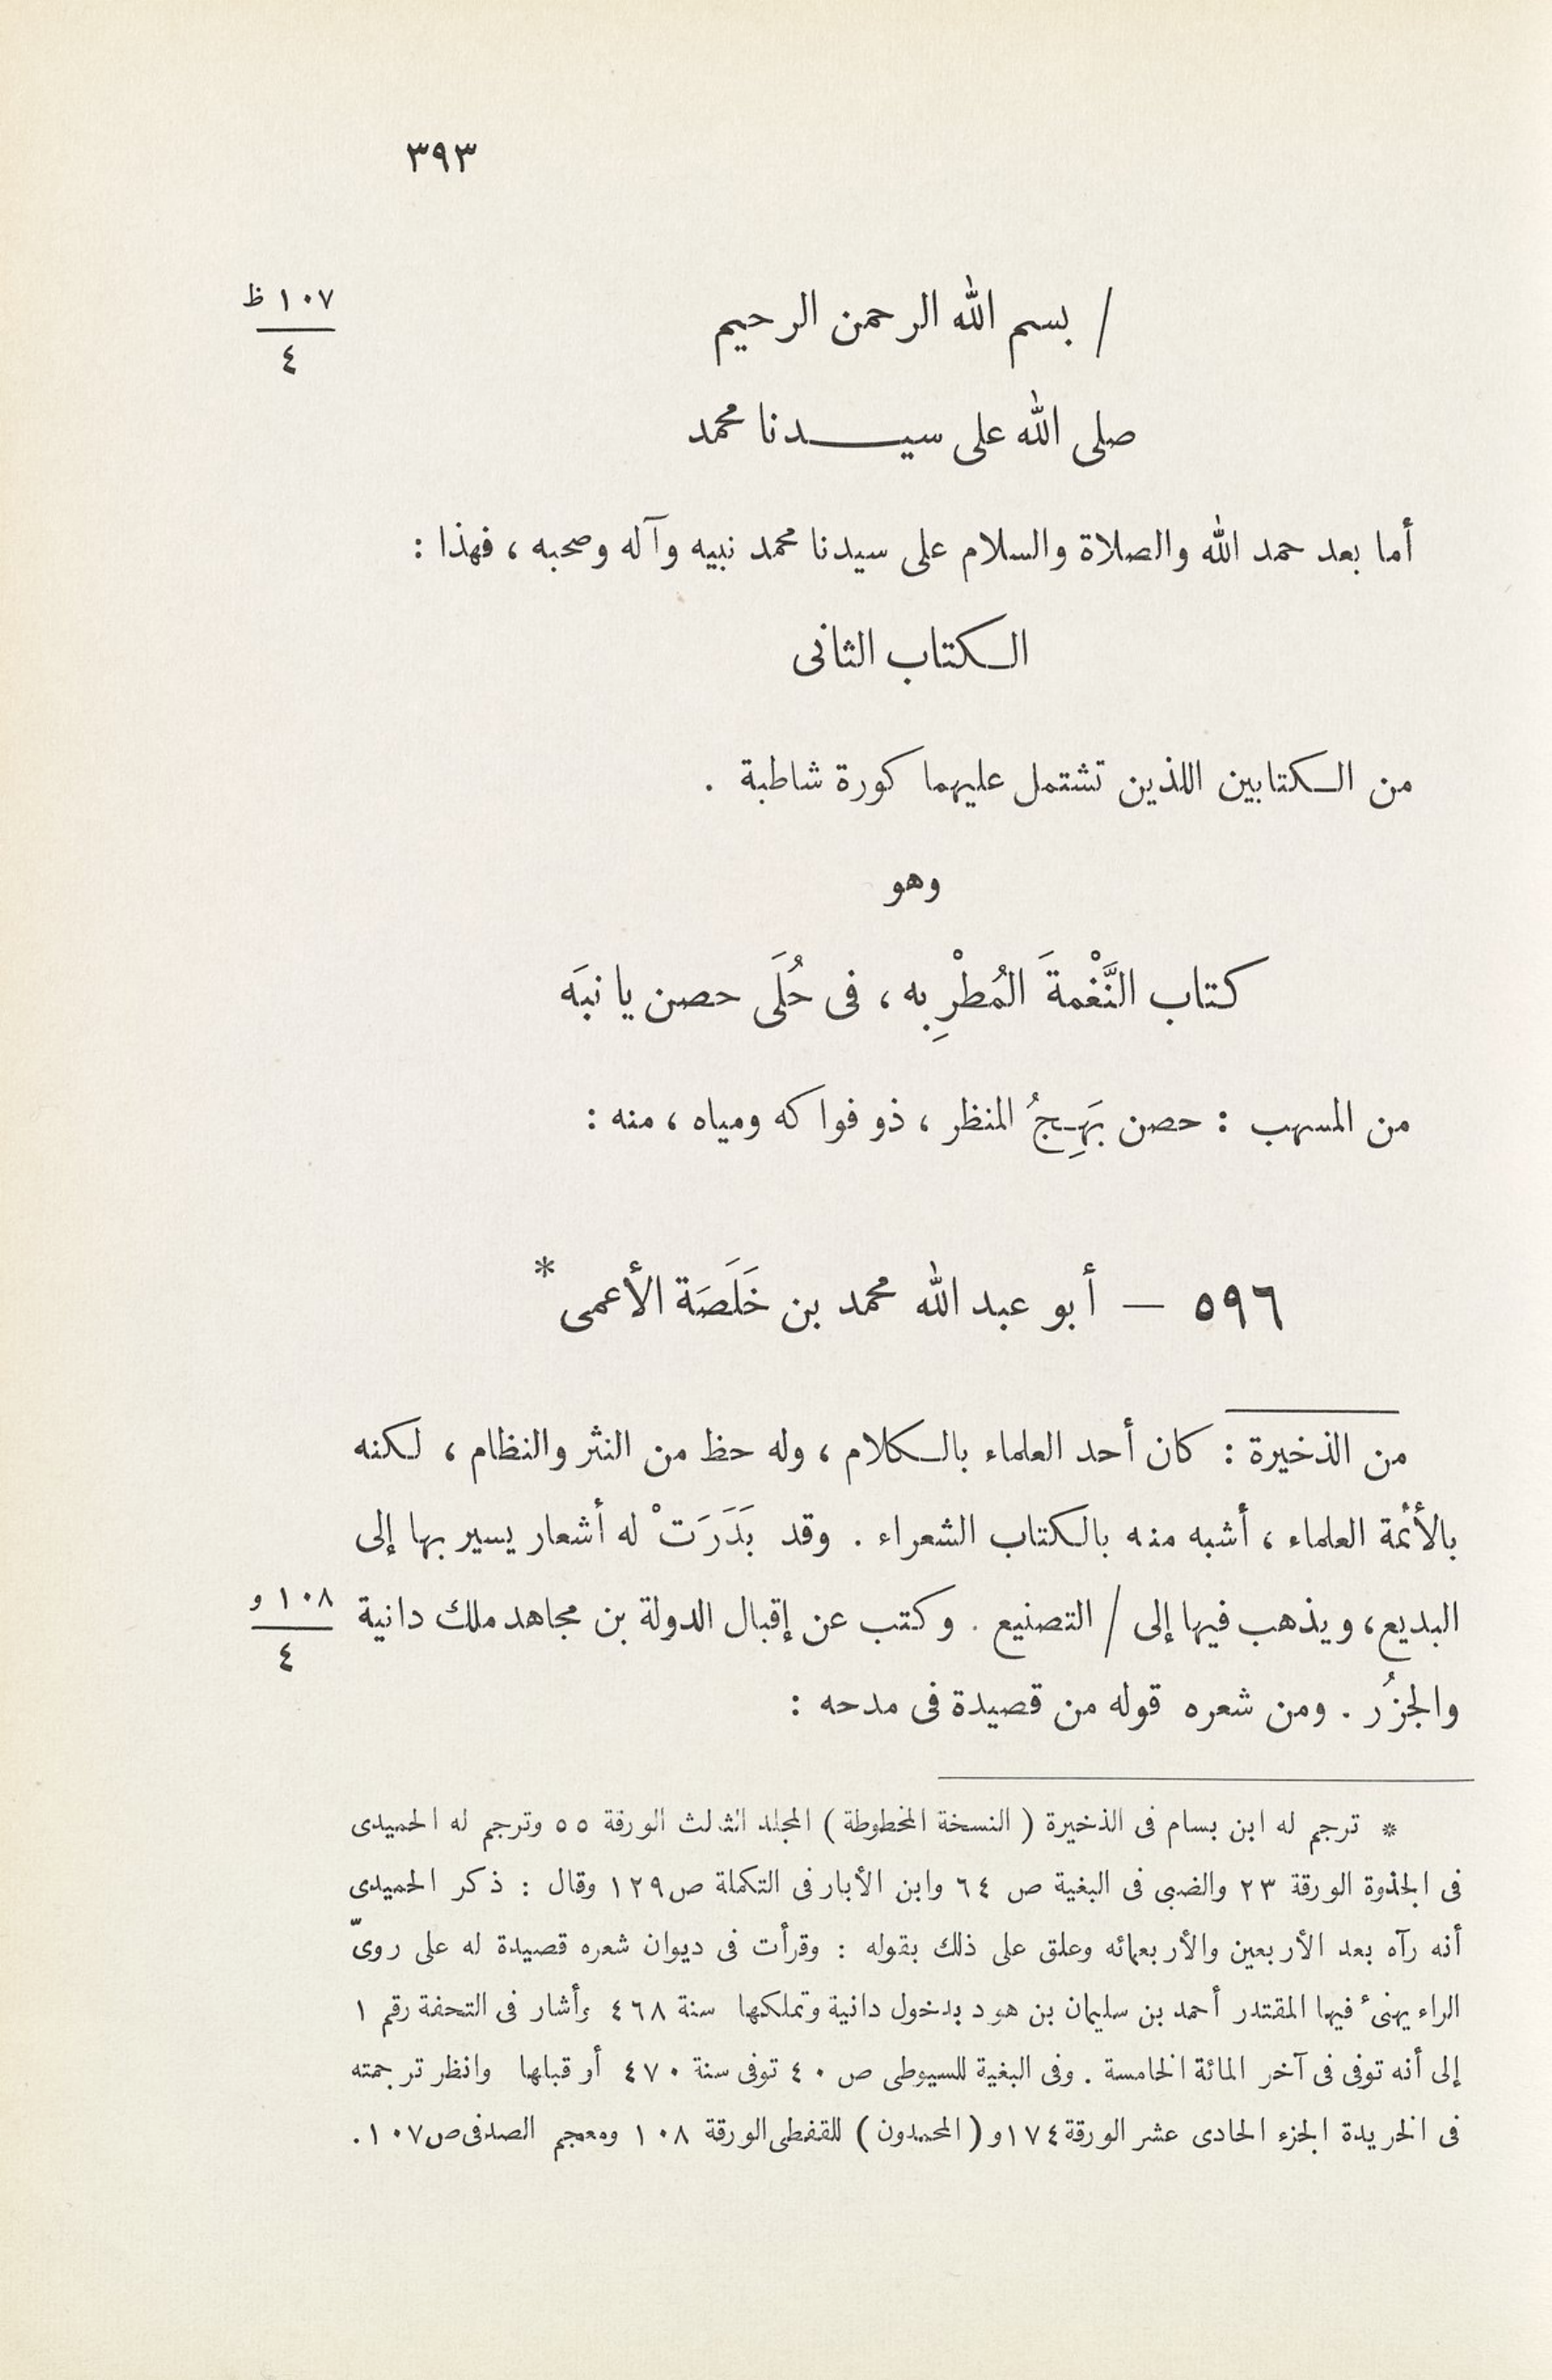 ٣٩٣
/ بسم الله الرحمن الرحيم
١٠٧ ظ
٤
صلى الله على سيدنا محمد
أما بعد حمد الله والصلاة والسلام على سيدنا محمد نبيه وآله وصحبه ، فهذا :
الكتاب الثانى
من الكتابين اللذين تشتمل عليهما كورة شاطبة .
وهو
كتاب النَّغْمةَ المُطْرِبه ، فى حُلَى حصن يانبَه
من المسهب : حصن بَهِجُ المنظر ، ذو فواكه ومياه ، منه :
٥٩٦ — أبو عبد الله محمد بن خَلَصَة الأعمى *
من الذخيرة : كان أحد العلماء بالكلام ، وله حظ من النثر والنظام ، لكنه
بالأئمة العلماء ، أشبه منه بالكتاب الشعراء . وقد بَدَرَتْ له أشعار يسير بها إلى
البديع ، ويذهب فيها إلى / التصنيع . وكتب عن إقبال الدولة بن مجاهد ملك دانية
١٠٨ و
٤
والجزُر . ومن شعره قوله من قصيدة فى مدحه :
* ترجم له ابن بسام فى الذخيرة ( النسخة المخطوطة ) المجلد الثالث الورقة ٥٥ وترجم له الحميدى
فى الجذوة الورقة ٢٣ والضبى فى البغية ص ٦٤ وابن الأبار فى التكملة ص ١٢٩ وقال : ذكر الحميدى
أنه رآه بعد الأربعين والأربعمائه وعلق على ذلك بقوله : وقرأت فى ديوان شعره قصيدة له على روىّ
الراء يهنئ فيها المقتدر أحمد بن سليمان بن هود بدخول دانية وتملكها سنة ٤٦٨ وأشار فى التحفة رقم ١
إلى أنه توفى فى آخر المائة الخامسة . وفى البغية للسيوطى ص ٤٠ توفى سنة ٤٧٠ أو قبلها وانظر ترجمته
فى الخريدة الجزء الحادى عشر الورقة ١٧٤ و ( المحمدون ) للقفطى الورقة ١٠٨ ومعجم الصدفى ص ١٠٧ .